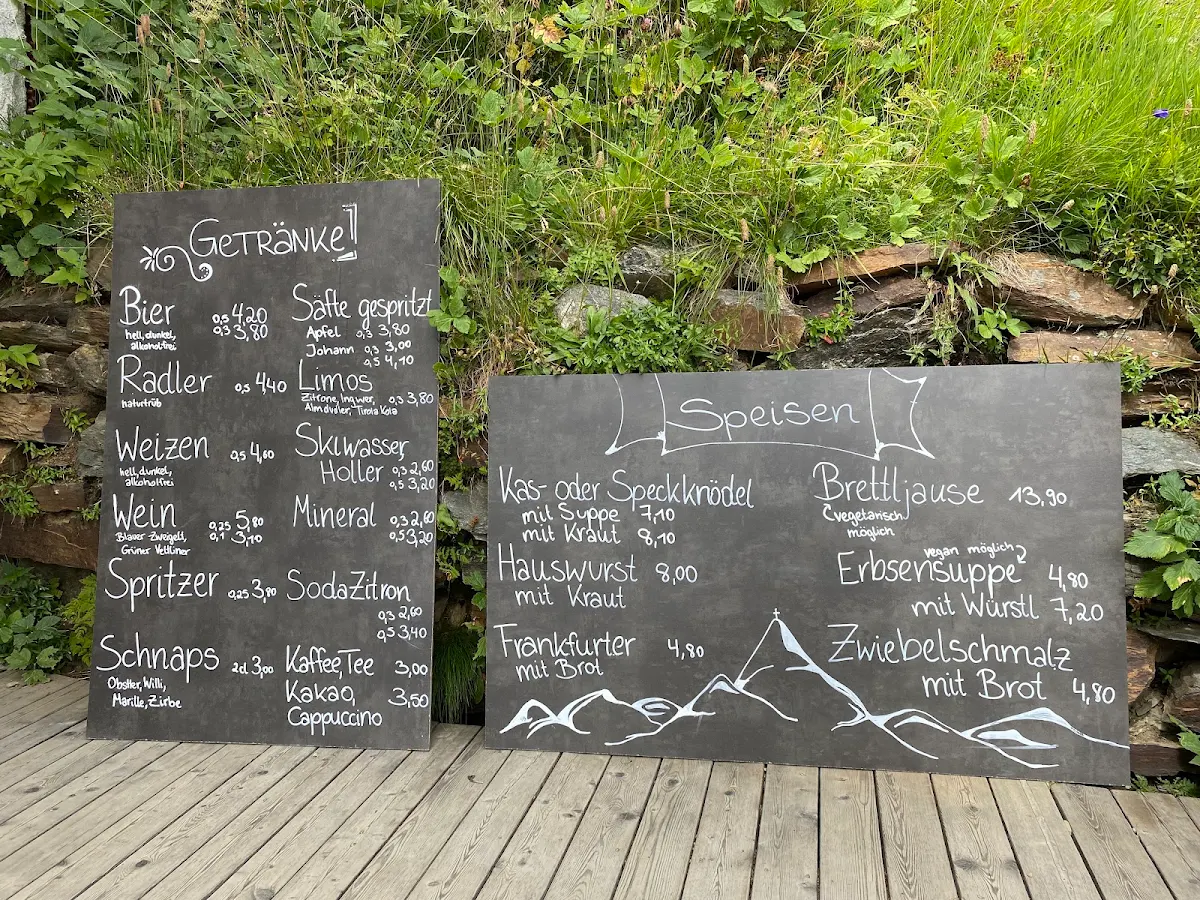 GETRÄNKE!
Bier 0,5 4,20
0,3 3,80
hell, dunkel,
alkoholfrei
Radler 0,5 4,40
naturtrüb
Weizen 0,5 4,60
hell, dunkel,
alkoholfrei
Wein 0,25 5,80
0,1 3,10
Blauer Zweigelt,
Grüner Veltliner
Spritzer 0,25 3,80
Schnaps 2cl 3,00
Obstler, Willi,
Marille, Zirbe
Säfte gespritzt
Apfel 0,3 3,80
Johann 0,3 3,00
0,5 4,10
Limos
Zitrone, Ingwer, 0,3 3,80
Almdudler, Tirola Kola
Skiwasser,
Holler 0,3 2,60
0,5 3,20
Mineral 0,3 2,60
0,5 3,20
Soda Zitron
0,3 2,60
0,5 3,40
Kaffee, Tee 3,00
Kakao, 3,50
Cappuccino
Speisen
Kas- oder Speckknödel
mit Suppe 7,10
mit Kraut 8,10
Hauswurst 8,00
mit Kraut
Frankfurter 4,80
mit Brot
Brettljause 13,90
vegetarisch
möglich
vegan möglich
Erbsensuppe 4,80
mit Würstl 7,20
Zwiebelschmalz
mit Brot 4,80